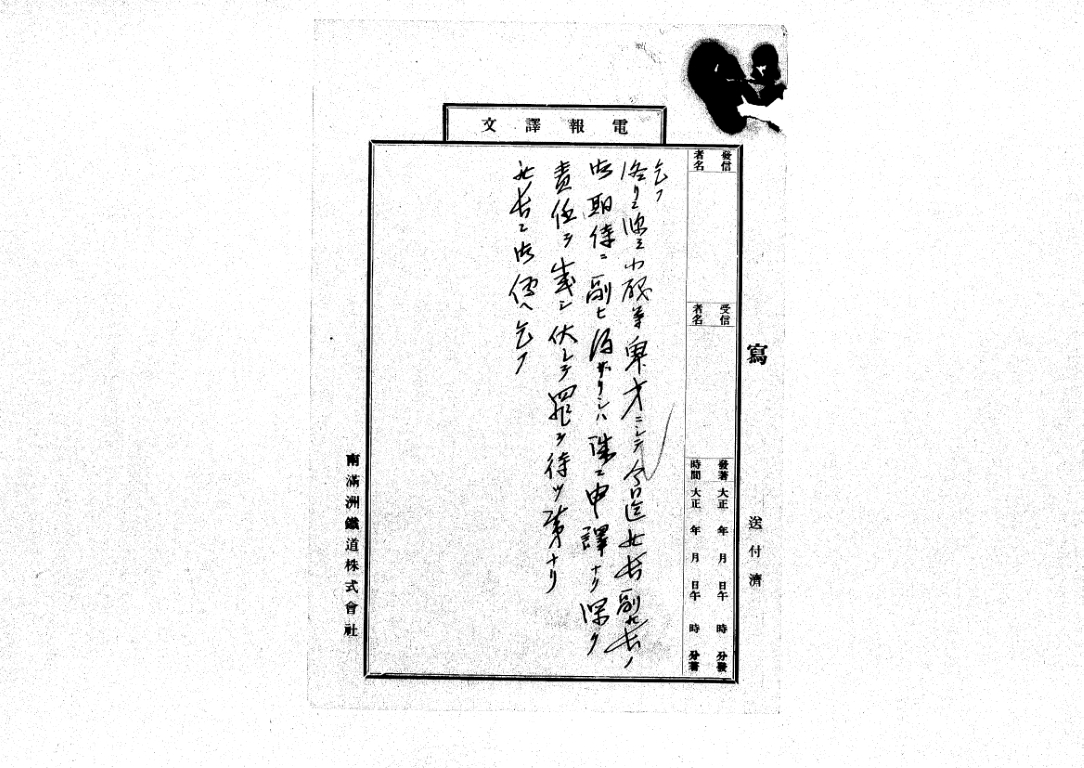 寫
送付濟
電報譯文
發信者名
受信者名
發著時間 大正 年 月 日午 時 分發
大正 年 月 日午 時 分著
乞フ
終リニ臨ミ小職等菲才ニシテ今日迄社長副社長ノ
御期待ニ副ヒ得ザリシハ誠ニ申譯ナク深ク
責任ヲ感シ伏シテ罪ヲ待ツ次第ナリ
社長ニ御傳ヘ乞フ
南滿洲鐵道株式會社